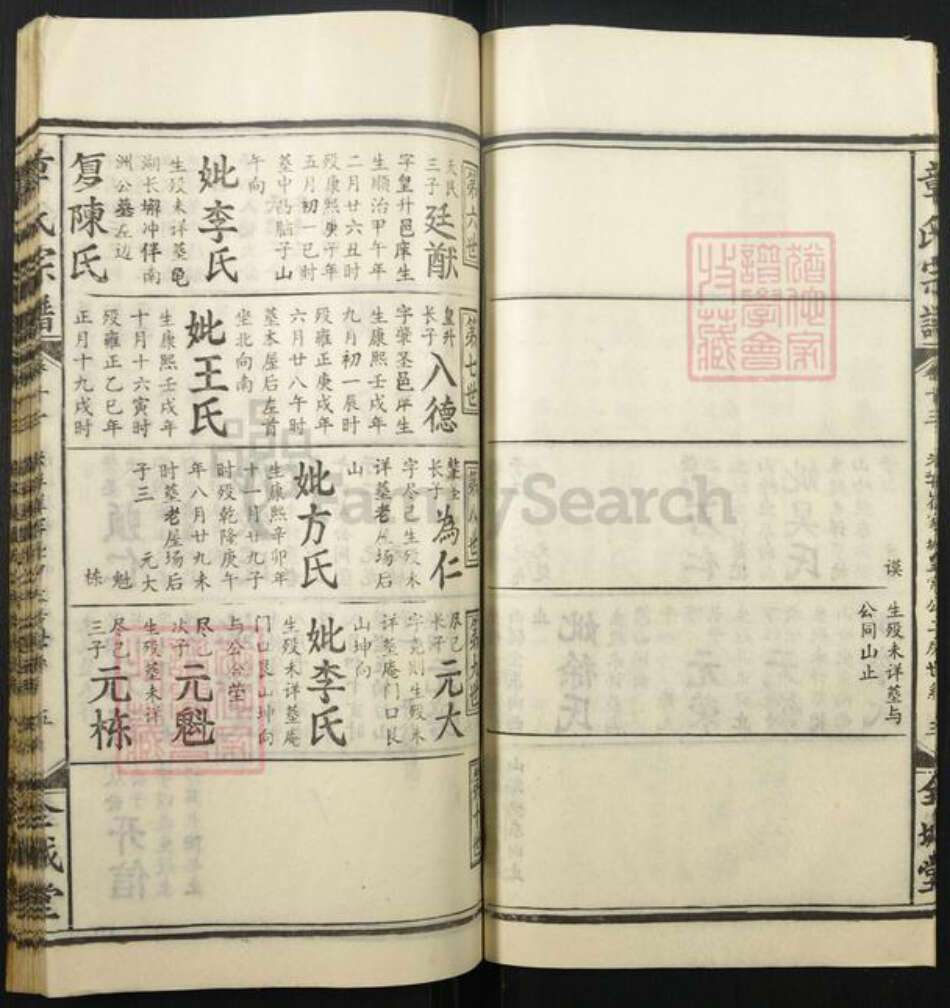 章氏宗譜
謨
生殁未详墓与
公同山止
第六世
天民
三子
廷猷
字皇升邑庠生
生顺治甲午年
二月廿六丑时
殁康熙庚午年
五月初一巳时
午向
妣李氏
生殁未详墓龟
湖长塘冲伴南
洲公墓左边
复陳氏
第七世
皇升
长子
入德
字肇圣邑庠生
生康熙壬戌年
九月初一辰时
殁雍正庚戌年
六月廿八午时
墓本屋后左首
坐北向南
妣王氏
生康熙壬戌年
十月十六寅时
殁雍正乙巳年
正月十九戌时
第八世
肇圣
长子
為仁
字尽己生殁未
详墓老屋场后
山
妣方氏
生康熙辛卯年
十一月廿九子
时殁乾隆庚午
年八月廿九未
时墓老屋场后
子三
元大
魁
栋
第九世
尽己
长子
元大
字克则生殁未
详墓庵门口艮
山坤向
妣李氏
生殁未详墓庵
门口艮山坤向
与公合茔
尽己
次子
元魁
生殁墓未详
尽己
三子
元栋
第十世
章氏宗譜
FamilySearch